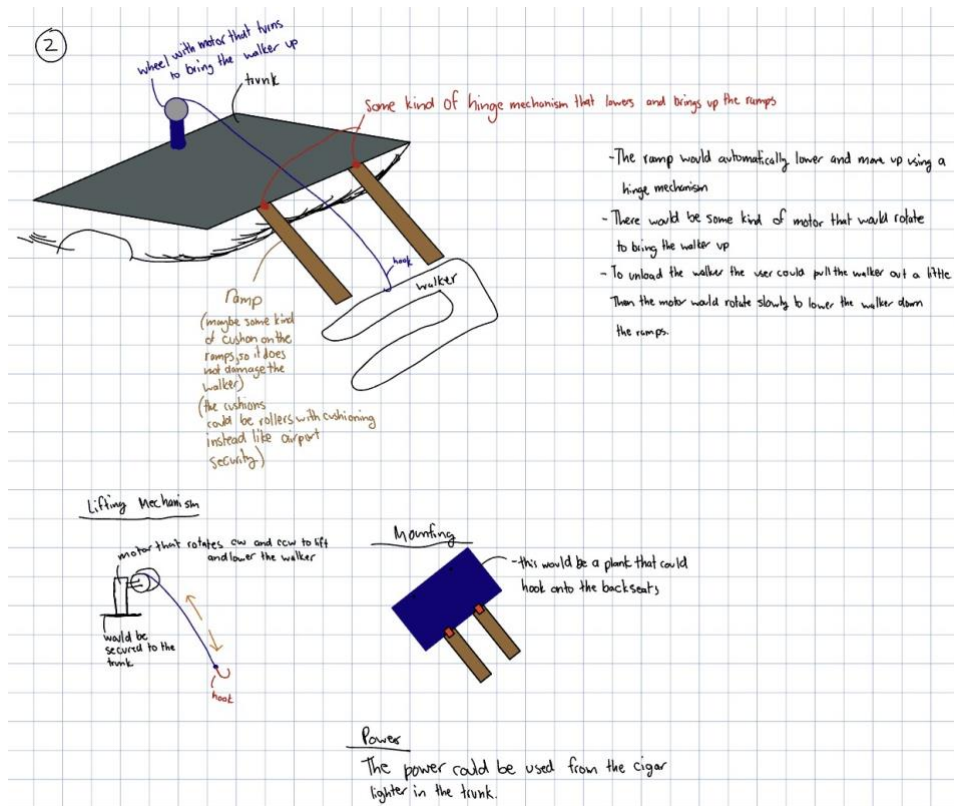 2
wheel with motor that turns
to bring the walker up
trunk
Some kind of hinge mechanism that lowers and brings up the ramps
-The ramp would automatically lower and move up using a
hinge mechanism
-There would be some kind of motor that would rotate
to bring the walker up
-To unload the walker the user could pull the walker out a little
Then the motor would rotate slowly to lower the walker down
the ramps.
hook
walker
ramp
(maybe some kind
of cushon on the
ramps, so it does
not damage the
walker)
(the cushions
could be rollers with cushioning
instead like airport
security)
Lifting Mechanism
motor that rotates cw and ccw to lift
and lower the walker
would be
secured to the
trunk
hook
Mounting
-this would be a plank that could
hook onto the backseats
Power
The power could be used from the cigar
lighter in the trunk.